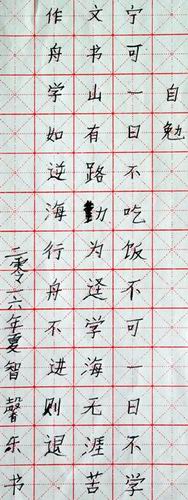 自勉
宁可一日不吃饭不可一日不学
文书山有路勤为迳学海无涯苦
作舟学如逆海行舟不进则退
二零一六年夏智馨乐书